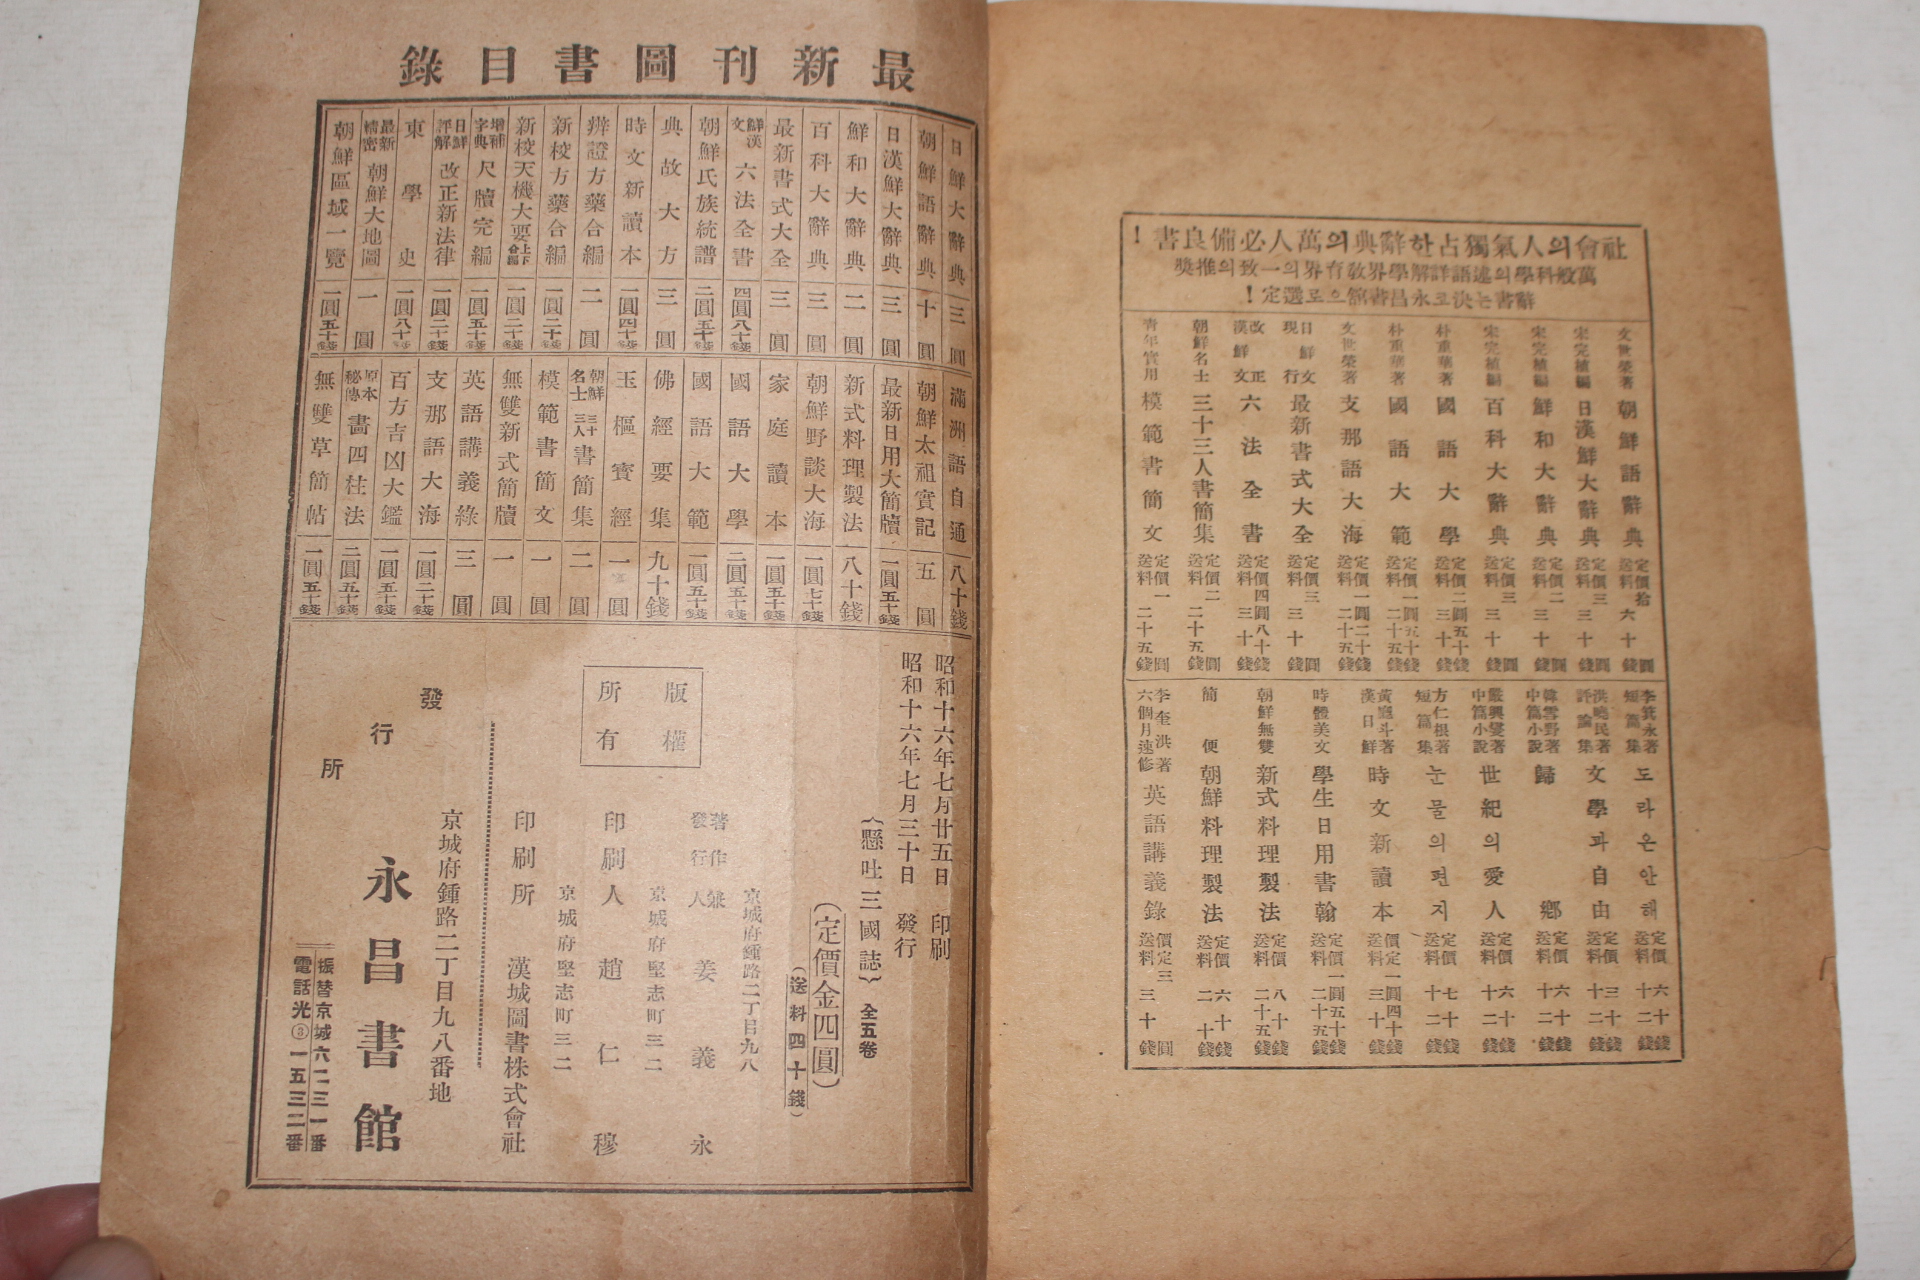 社會의人氣獨占한辭典의萬人必備良書!
萬般科學의述語詳解學界敎育界의一致의推奬
辭書는決코永昌書舘으로選定!
文世榮著 朝鮮語辭典 定價拾圓 送料六十錢
宋完植編 日漢鮮大辭典 定價三圓 送料三十錢
宋完植編 鮮和大辭典 定價二圓 送料三十錢
宋完植編 百科大辭典 定價三圓 送料三十錢
朴重華著 國語大學 定價二圓五十錢 送料三十錢
朴重華著 國語大範 定價一圓五十錢 送料二十五錢
文世榮著 支那語大海 定價一圓二十錢 送料二十五錢
日鮮文現行 最新書式大全 定價三圓 送料三十錢
改正漢鮮文 六法全書 定價四圓八十錢 送料三十錢
朝鮮名士 三十三人書簡集 定價二圓 送料二十五錢
靑年實用 模範書簡文 定價一圓 送料二十五錢
李箕永著 短篇集 도라온안해 定價六十錢 送料十二錢
洪曉民著 評論集 文學과自由 定價三十錢 送料十二錢
韓雪野著 中篇小說 歸鄕 定價六十錢 送料十二錢
嚴興燮著 中篇小說 世紀의愛人 定價六十錢 送料十二錢
方仁根著 短篇集 눈물의편지 定價七十錢 送料十二錢
黃義斗著 漢日鮮 時文新讀本 價定一圓四十錢 送料三十錢
時體美文 學生日用書翰 定價一圓五十錢 送料二十五錢
朝鮮無雙 新式料理製法 定價八十錢 送料二十五錢
簡便 朝鮮料理製法 定價六十錢 送料二十錢
李奎洪著 六個月速修 英語講義錄 價定三圓 送料三十錢
最新刊圖書目錄
日鮮大辭典 三圓
朝鮮語辭典 十圓
日漢鮮大辭典 三圓
鮮和大辭典 二圓
百科大辭典 三圓
最新書式大全 三圓
鮮漢文 六法全書 四圓八十錢
朝鮮氏族統譜 二圓五十錢
典故大方 三圓
時文新讀本 一圓四十錢
辨證方藥合編 二圓
新校方藥合編 一圓二十錢
新校天機大要 上下合編 一圓二十錢
增補字典 尺牘完編 一圓五十錢
日鮮評解 改正新法律 一圓二十錢
東學史 一圓八十錢
最新精密 朝鮮大地圖 一圓
朝鮮區域一覽 一圓五十錢
滿洲語自通 八十錢
朝鮮太祖實記 五圓
最新日用大簡牘 一圓五十錢
新式料理製法 八十錢
朝鮮野談大海 一圓七十錢
家庭讀本 一圓五十錢
國語大學 二圓五十錢
國語大範 一圓五十錢
佛經要集 九十錢
玉樞寶經 一圓
朝鮮名士 三十三人書簡集 二圓
模範書簡文 一圓
無雙新式簡牘 一圓
英語講義綠 三圓
支那語大海 一圓二十錢
百方吉凶大鑑 一圓五十錢
原本秘傳 畵四柱法 二圓五十錢
無雙草簡帖 一圓五十錢
昭和十六年七月廿五日 印刷
昭和十六年七月三十日 發行
(懸吐三國誌) 全五卷
(定價金四圓)
(送料四十錢)
版權所有
京城府鍾路二丁目九八
著作兼發行人 姜義永
京城府堅志町三二
印刷人 趙仁穆
京城府堅志町三二
印刷所 漢城圖書株式會社
京城府鍾路二丁目九八番地
發行所 永昌書館
振替京城六二三一番
電話光③一五三二番